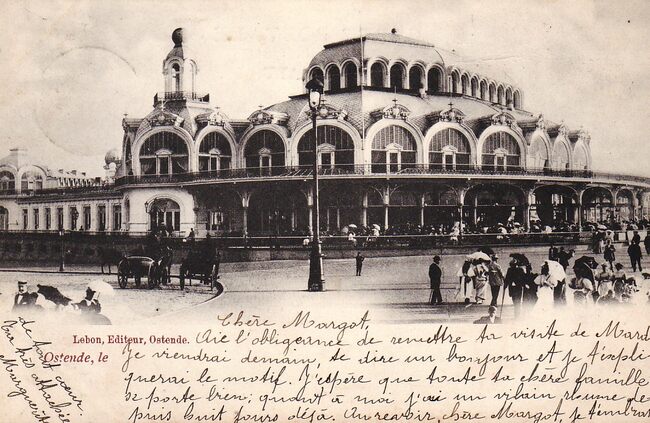 Lebon, Editeur, Ostende.
Ostende, le
Chère Margot,
Aie l'obligeance de remettre ta visite de Mard
Je viendrai demain, te dire un bonjour et je t'expli
querai le motif. J'espère que toute ta chère famille
se porte bien; quant à moi j'ai un vilain rhume de
puis huit jours déjà. Au revoir, chère Margot, je t'embras
de tout cœur
Ta très attachée
Marguerite